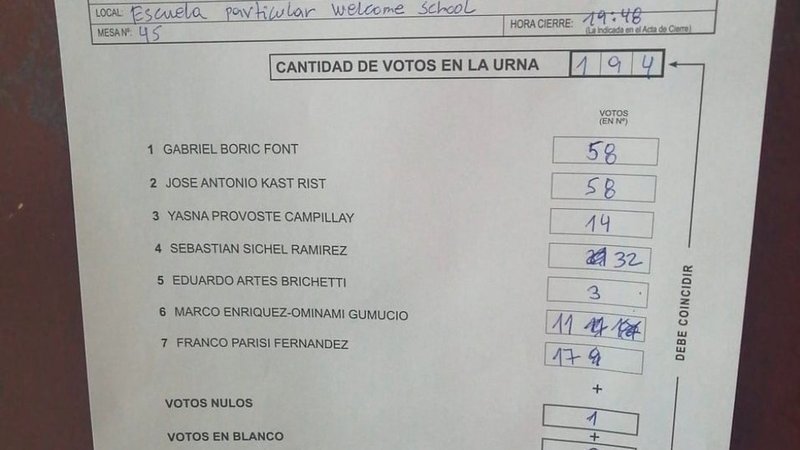 LOCAL: Escuela particular welcome school
MESA Nº: 45
HORA CIERRE: 19:48
(La indicada en el Acta de Cierre)
CANTIDAD DE VOTOS EN LA URNA 194
VOTOS
(EN Nº)
1 GABRIEL BORIC FONT 58
2 JOSE ANTONIO KAST RIST 58
3 YASNA PROVOSTE CAMPILLAY 14
4 SEBASTIAN SICHEL RAMIREZ 32
5 EDUARDO ARTES BRICHETTI 3
6 MARCO ENRIQUEZ-OMINAMI GUMUCIO 11
7 FRANCO PARISI FERNANDEZ 17
+
VOTOS NULOS 1
+
VOTOS EN BLANCO
DEBE COINCIDIR